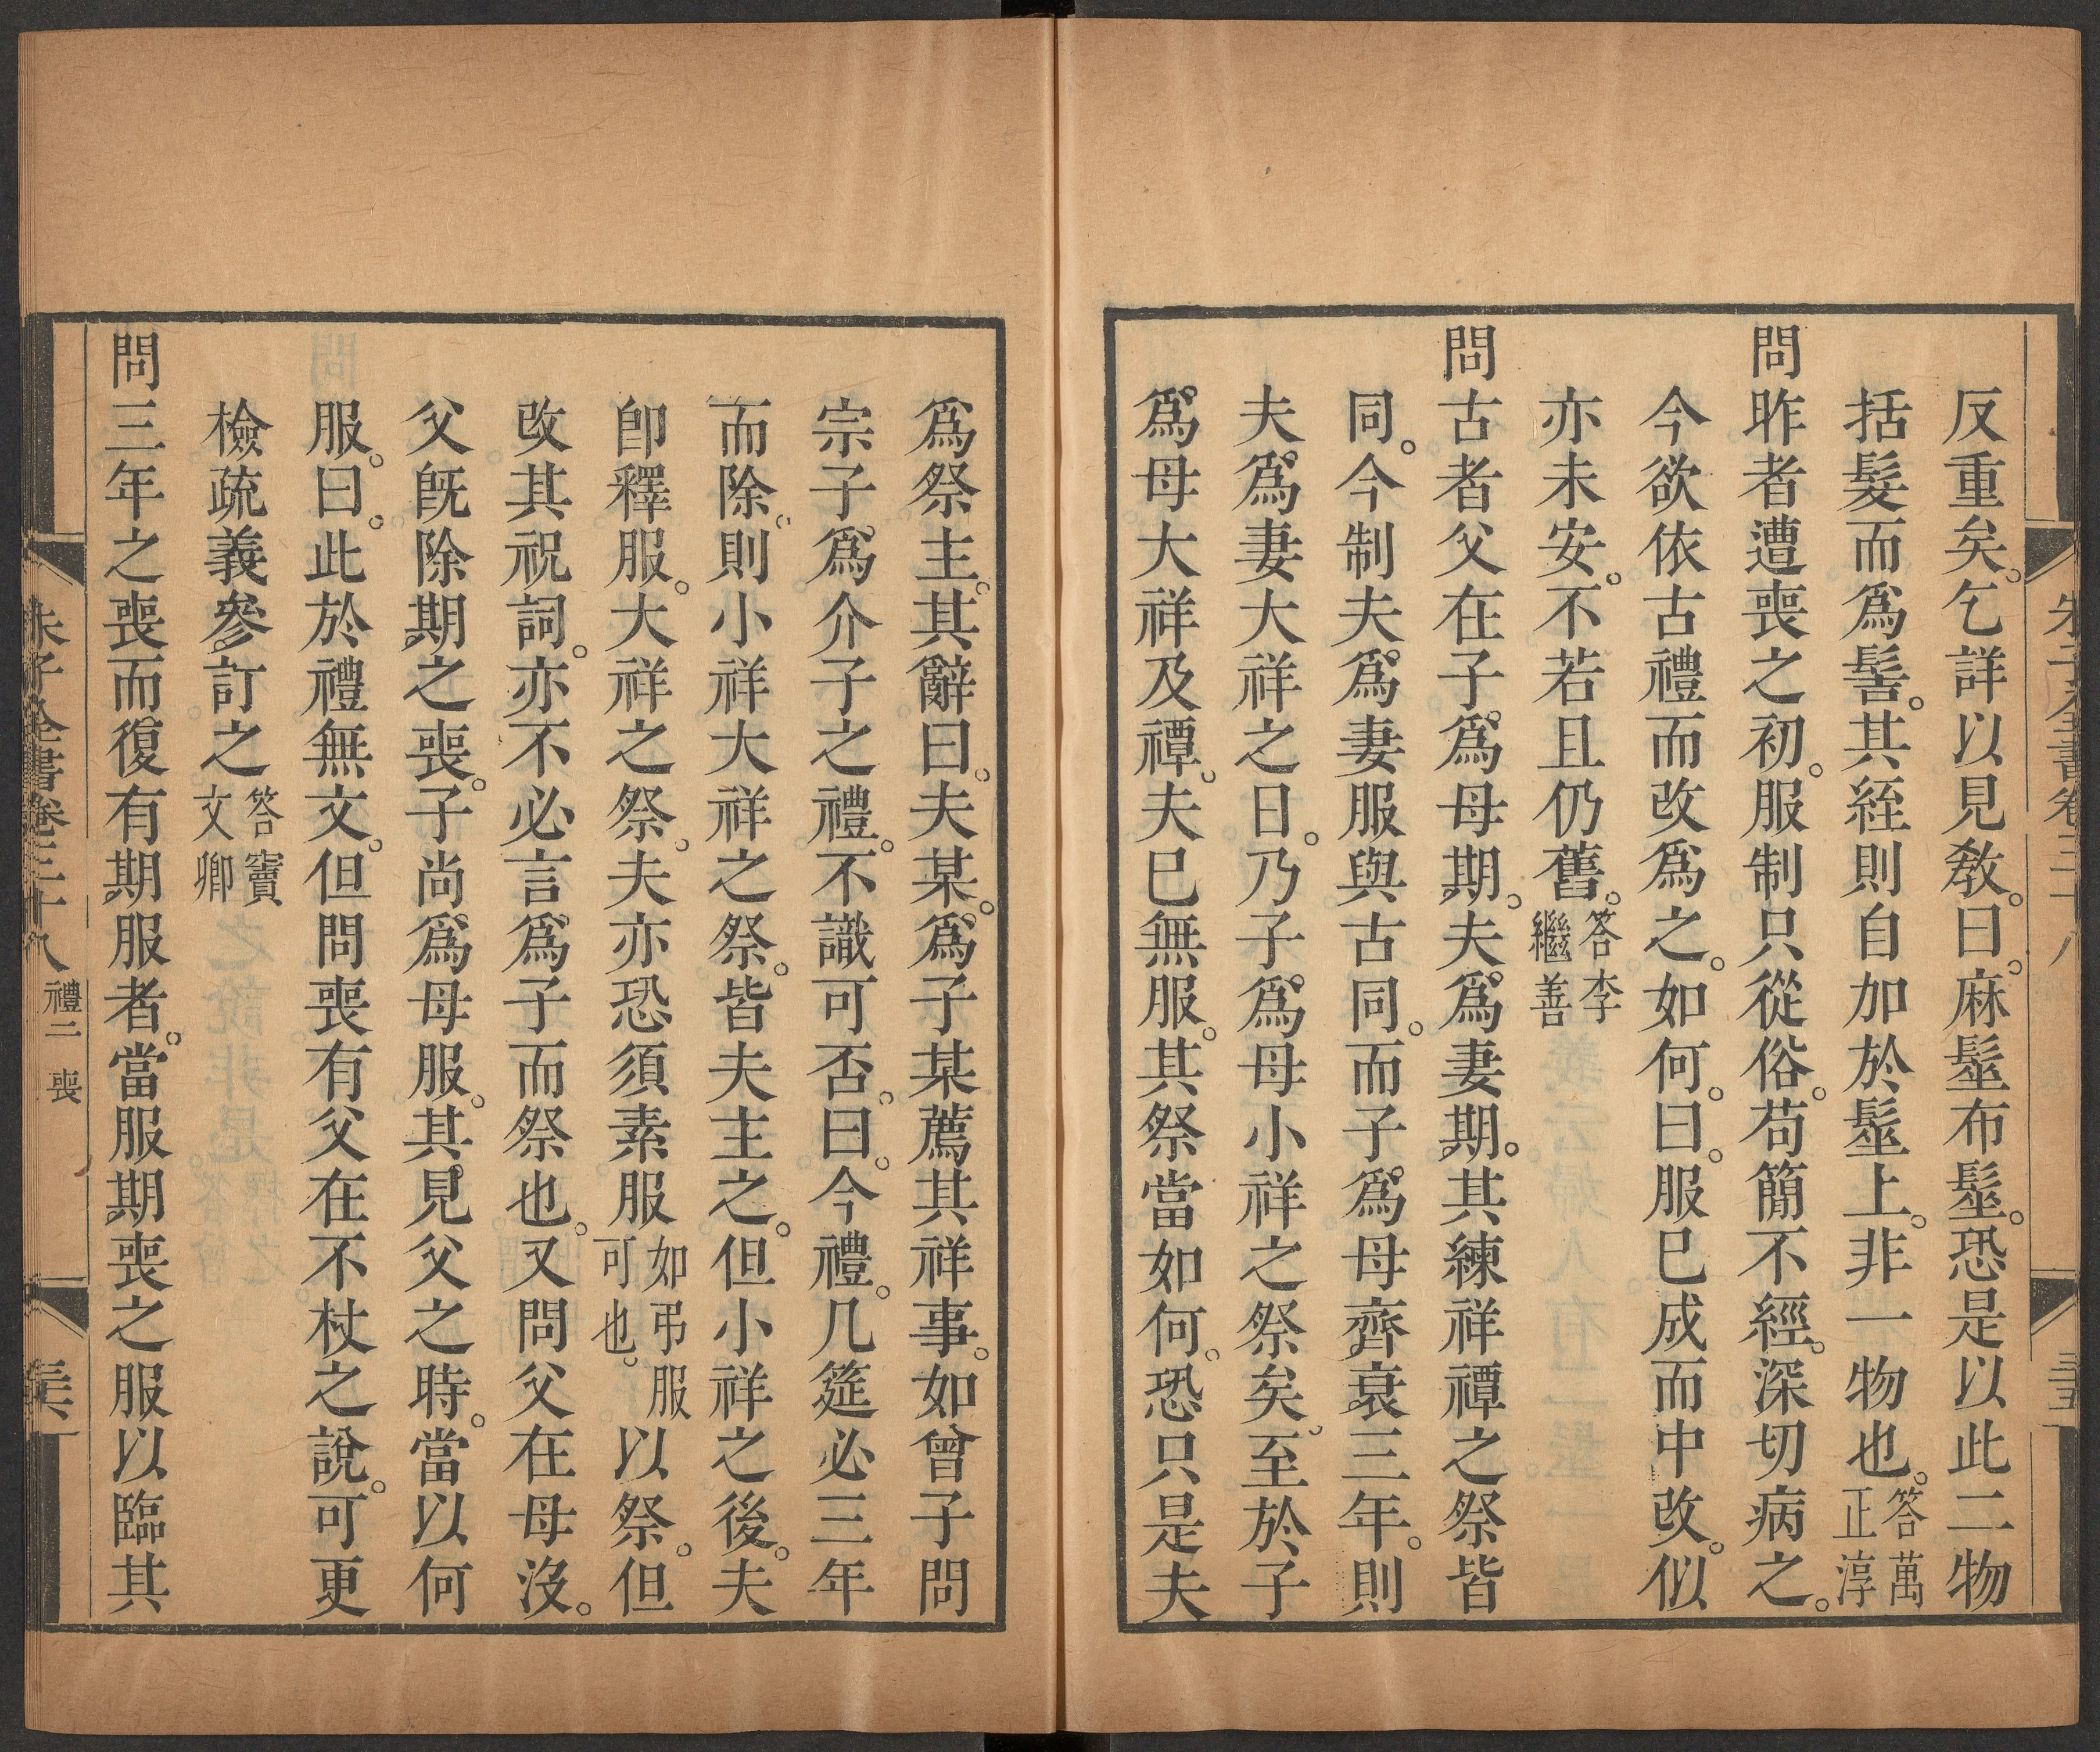 反重矣。乞詳以見敎。曰。麻髽布髽。恐是以此二物
括髮而爲髻。其絰則自加於髽上。非一物也。答萬正淳
問昨者遭喪之初。服制只從俗。苟簡不經。深切病之。
今欲依古禮而改爲之。如何。曰。服已成而中改。似
亦未安。不若且仍舊。答李繼善
問古者父在子爲母期。夫爲妻期。其練祥禫之祭皆
同。今制夫爲妻服與古同。而子爲母齊衰三年。則
夫爲妻大祥之日。乃子爲母小祥之祭矣。至於子
爲母大祥及禫。夫已無服。其祭當如何。恐只是夫
爲祭主。其辭曰。夫某。爲子某薦其祥事。如曾子問
宗子爲介子之禮。不識可否。曰。今禮。几筵必三年
而除。則小祥大祥之祭。皆夫主之。但小祥之後。夫
卽釋服。大祥之祭。夫亦恐須素服如弔服可也。以祭。但
改其祝詞。亦不必言爲子而祭也。又問父在母沒。
父旣除期之喪。子尚爲母服。其見父之時。當以何
服。曰。此於禮無文。但問喪有父在不杖之說。可更
檢疏義參訂之答竇文卿
問三年之喪而復有期服者。當服期喪之服以臨其
朱子全書卷三十八 禮二 喪